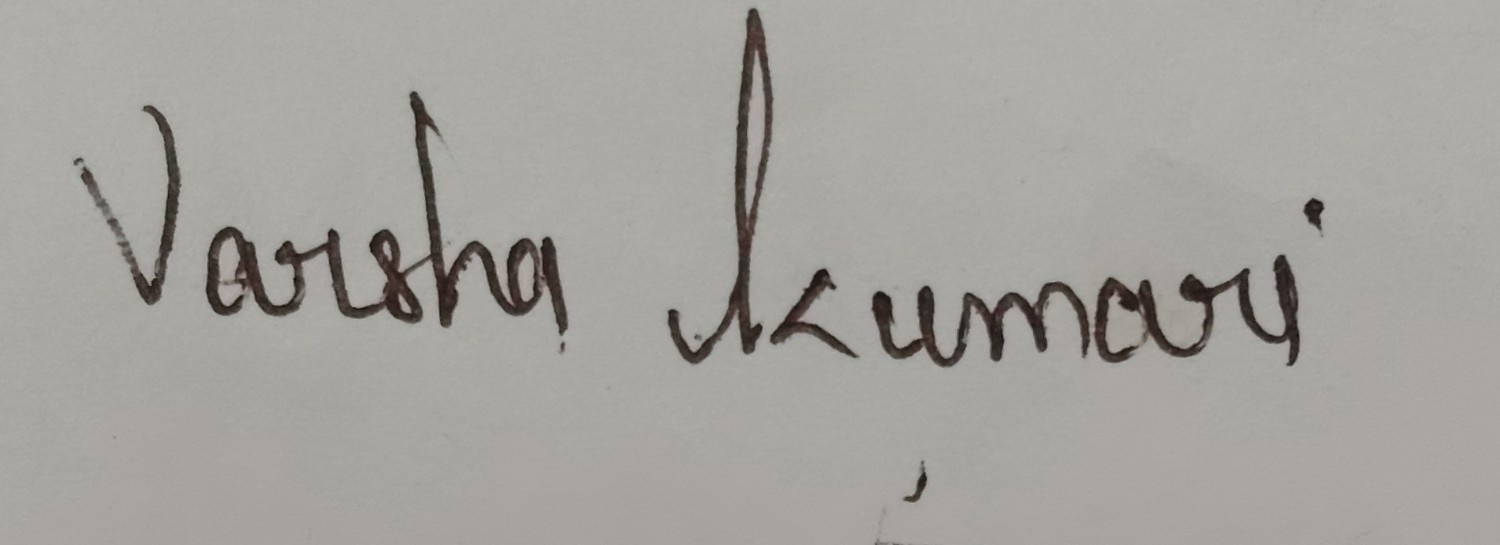 Varsha kumari